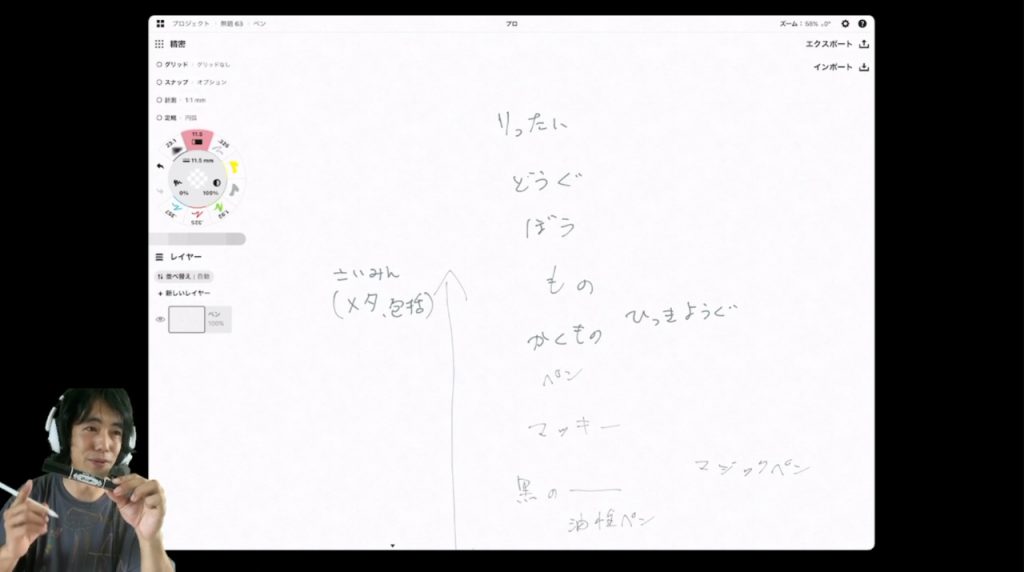 プロジェクト 無題 63 ペン
プロ
ズーム: 58% 0°
精密
エクスポート
インポート
グリッド グリッドなし
スナップ オプション
計測 1:1 mm
定規 円弧
11.5
23.1
.325
11.5 mm
0% 100%
.357
.325
1.92
レイヤー
並べ替え 自動
+ 新しいレイヤー
ペン
100%
りったい
どうぐ
ぼう
さいみん
(メタ、包括)
もの
ひっきようぐ
かくもの
ペン
マッキー
マジックペン
黒の
油性ペン